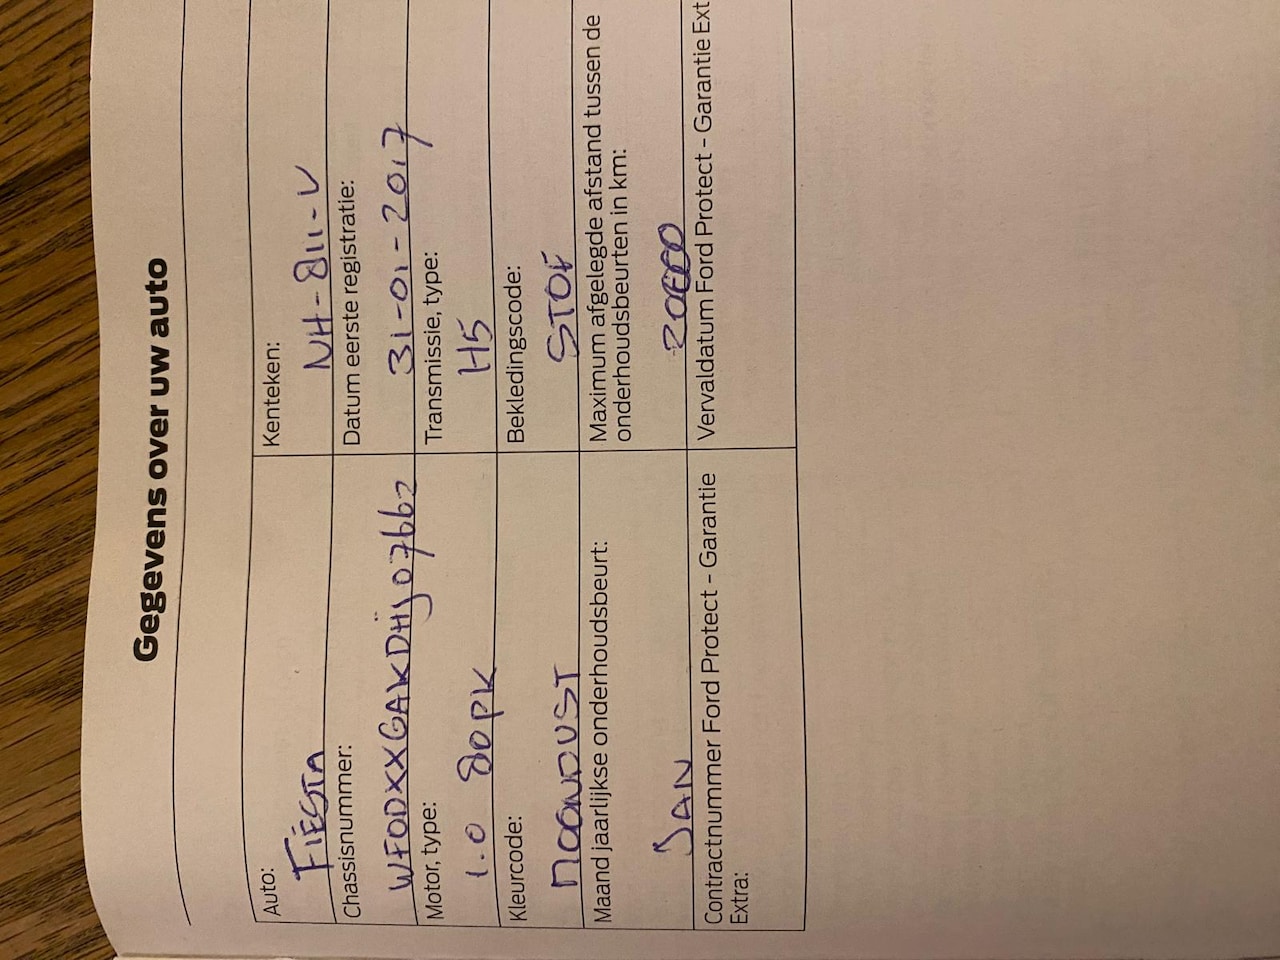 Gegevens over uw auto
Auto:
FiESTA
Kenteken:
NH-811-V
Chassisnummer:
WFODXXGAKDHJ07662
Datum eerste registratie:
31-01-2017
Motor, type:
1.0 80PK
Transmissie, type:
H5
Kleurcode:
MOONDUST
Bekledingscode:
STOF
Maand jaarlijkse onderhoudsbeurt:
JAN
Maximum afgelegde afstand tussen de
onderhoudsbeurten in km:
20000
Contractnummer Ford Protect - Garantie
Extra:
Vervaldatum Ford Protect - Garantie Ext